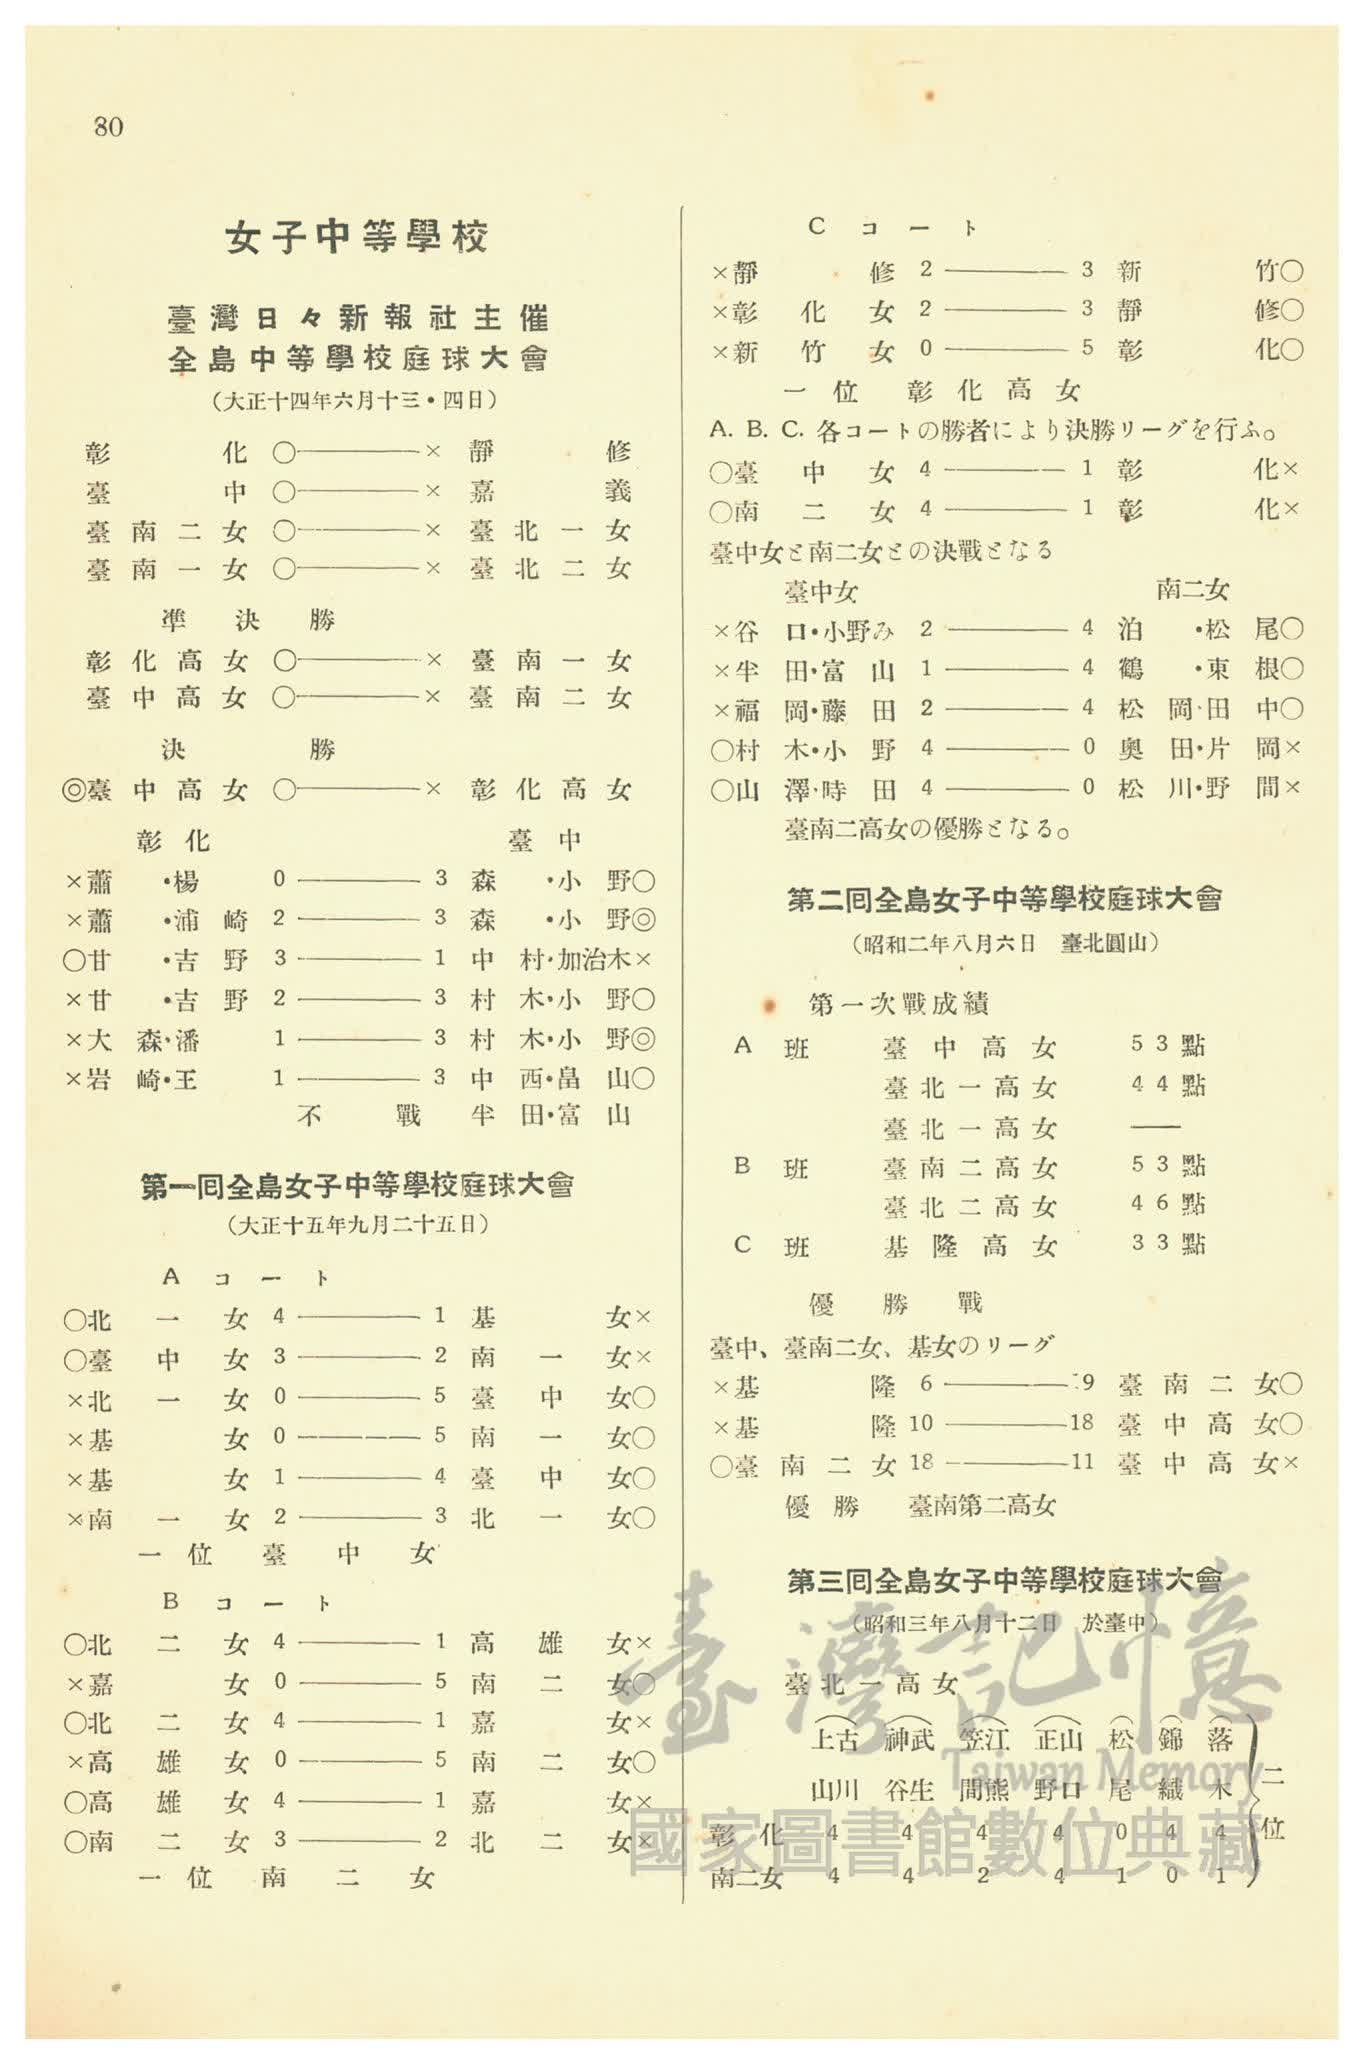 80
女子中等學校
臺灣日々新報社主催
全島中等學校庭球大會
（大正十四年六月十三・四日）
彰化〇———×靜修
臺中〇———×嘉義
臺南二女〇———×臺北一女
臺南一女〇———×臺北二女
準決勝
彰化高女〇———×臺南一女
臺中高女〇———×臺南二女
決勝
◎臺中高女〇———×彰化高女
彰化 臺中
×蕭・楊 0———3 森・小野〇
×蕭・浦崎 2———3 森・小野◎
〇甘・吉野 3———1 中村・加治木×
×甘・吉野 2———3 村木・小野〇
×大森・潘 1———3 村木・小野◎
×岩崎・王 1———3 中西・畠山〇
不戰 半田・富山
第一囘全島女子中等學校庭球大會
（大正十五年九月二十五日）
Aコート
〇北一女 4———1 基女×
〇臺中女 3———2 南一女×
×北一女 0———5 臺中女〇
×基女 0———5 南一女〇
×基女 1———4 臺中女〇
×南一女 2———3 北一女〇
一位 臺中女
Bコート
〇北二女 4———1 高雄女×
×嘉女 0———5 南二女〇
〇北二女 4———1 嘉女×
×高雄女 0———5 南二女〇
〇高雄女 4———1 嘉女×
〇南二女 3———2 北二女×
一位 南二女
Cコート
×靜修 2———3 新竹〇
×彰化女 2———3 靜修〇
×新竹女 0———5 彰化〇
一位 彰化高女
A. B. C. 各コートの勝者により決勝リーグを行ふ。
〇臺中女 4———1 彰化×
〇南二女 4———1 彰化×
臺中女と南二女との決戰となる
臺中女 南二女
×谷口・小野み 2———4 泊・松尾〇
×半田・富山 1———4 鶴・東根〇
×福岡・藤田 2———4 松岡・田中〇
〇村木・小野 4———0 奧田・片岡×
〇山澤・時田 4———0 松川・野間×
臺南二高女の優勝となる。
第二囘全島女子中等學校庭球大會
（昭和二年八月六日 臺北圓山）
第一次戰成績
A班 臺中高女 53點
臺北一高女 44點
臺北一高女 ——
B班 臺南二高女 53點
臺北二高女 46點
C班 基隆高女 33點
優勝戰
臺中、臺南二女、基女のリーグ
×基隆 6———9 臺南二女〇
×基隆 10———18 臺中高女〇
〇臺南二女 18———11 臺中高女×
優勝 臺南第二高女
第三囘全島女子中等學校庭球大會
（昭和三年八月十二日 於臺中）
臺北一高女
上古 神武 笠江 正山 松 錦 落
山川 谷生 間熊 野口 尾 織 木
彰化 4 4 4 4 0 4 4
南二女 4 4 2 4 1 0 1
二位
臺灣記憶
Taiwan Memory
國家圖書館數位典藏